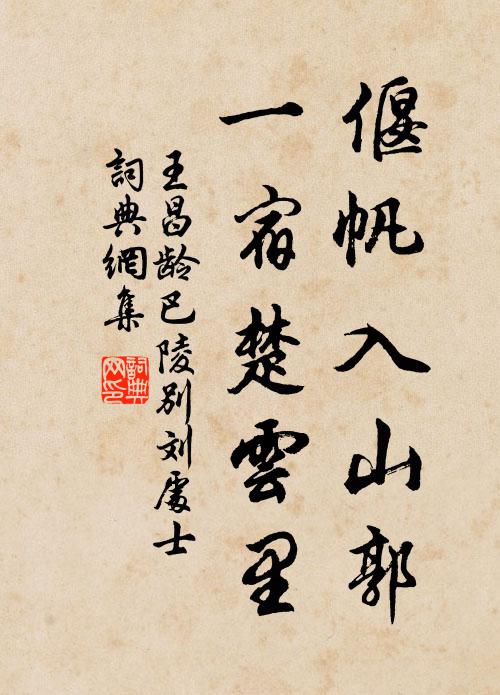 偃帆入山郭
一宿楚雲里
王昌龄巴陵別刘處士
詞典網集
詞典网印